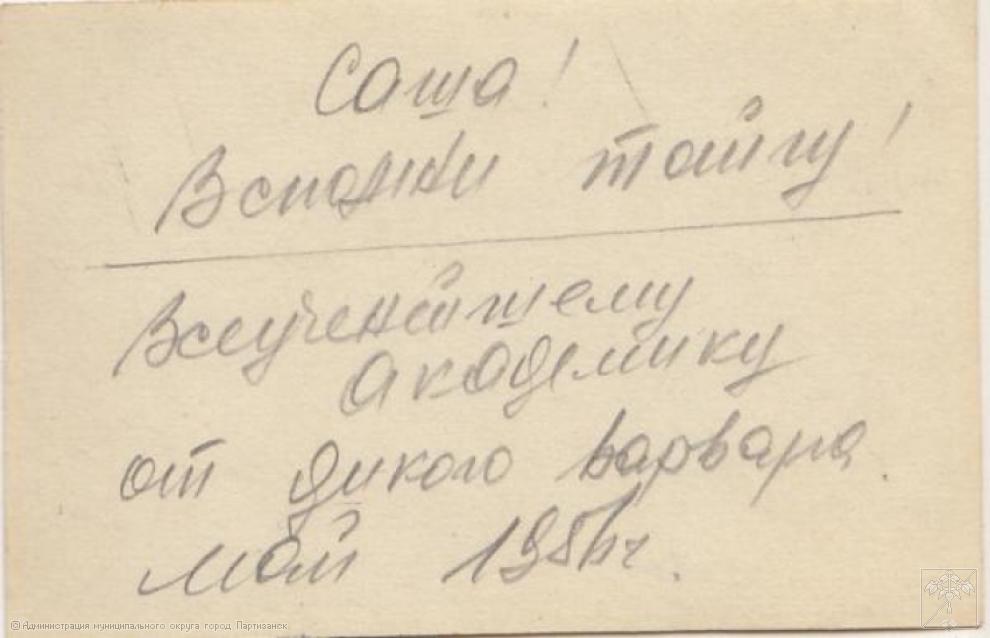 Саша!
Вспомни тайгу!
Всеученейшему
академику
от дикого варвара.
Май 1956г.
© Администрация муниципального округа город Партизанск